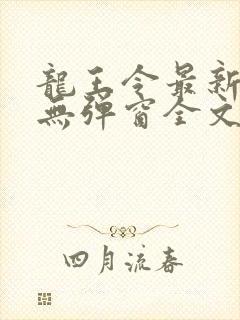 龍王令最新
無彈窗全文
四月流春